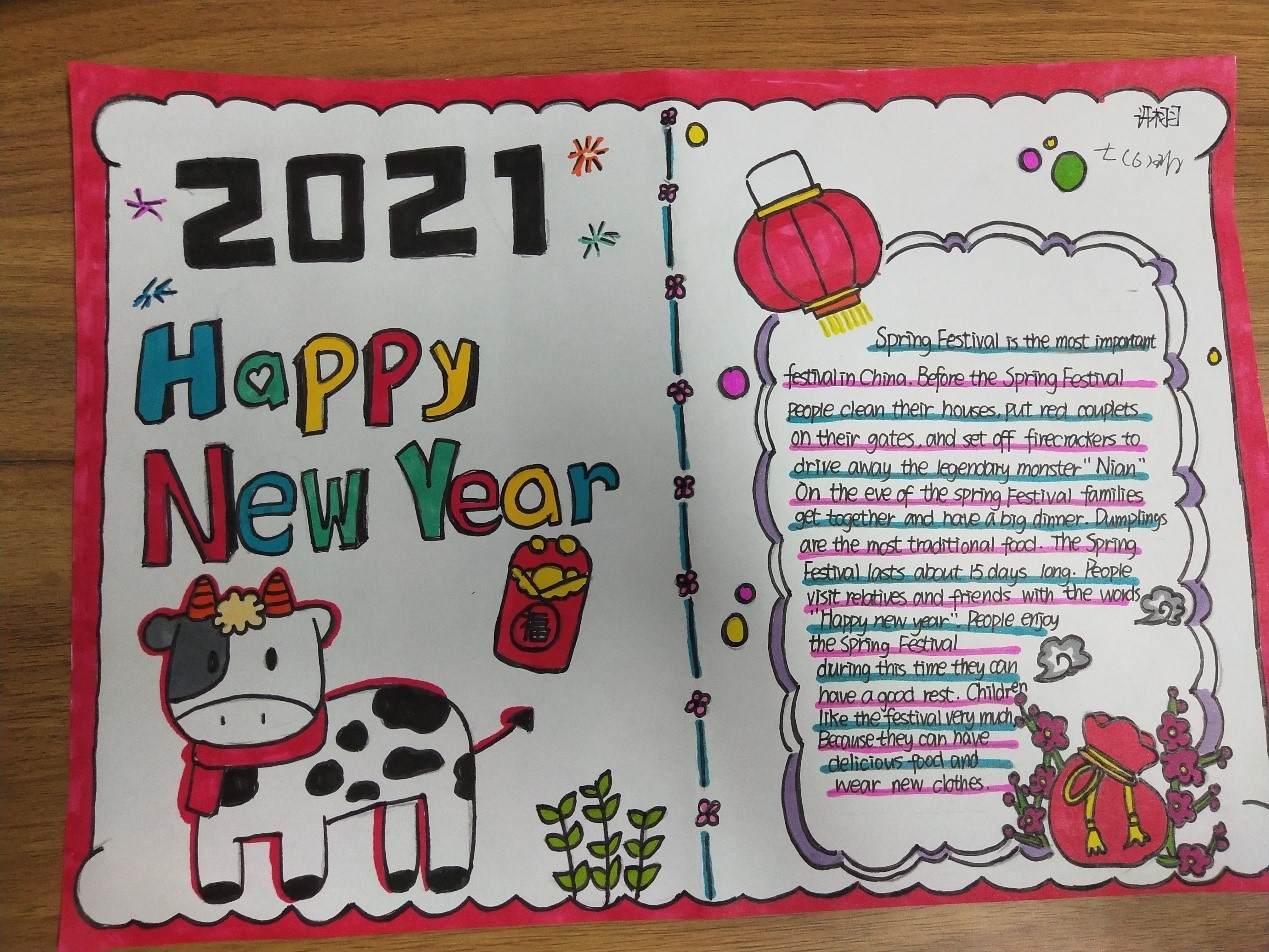 2021
Happy
New Year
福
Spring Festival is the most important
festival in China. Before the Spring Festival
People clean their houses, put red couplets
on their gates, and set off firecrackers to
drive away the legendary monster "Nian"
On the eve of the spring Festival families
get together and have a big dinner. Dumplings
are the most traditional food. The Spring
Festival lasts about 15 days long. People
visit relatives and friends with the words
"Happy new year". People enjoy
the Spring Festival
during this time they can
have a good rest. Children
like the festival very much,
Because they can have
delicious food and
wear new clothes.